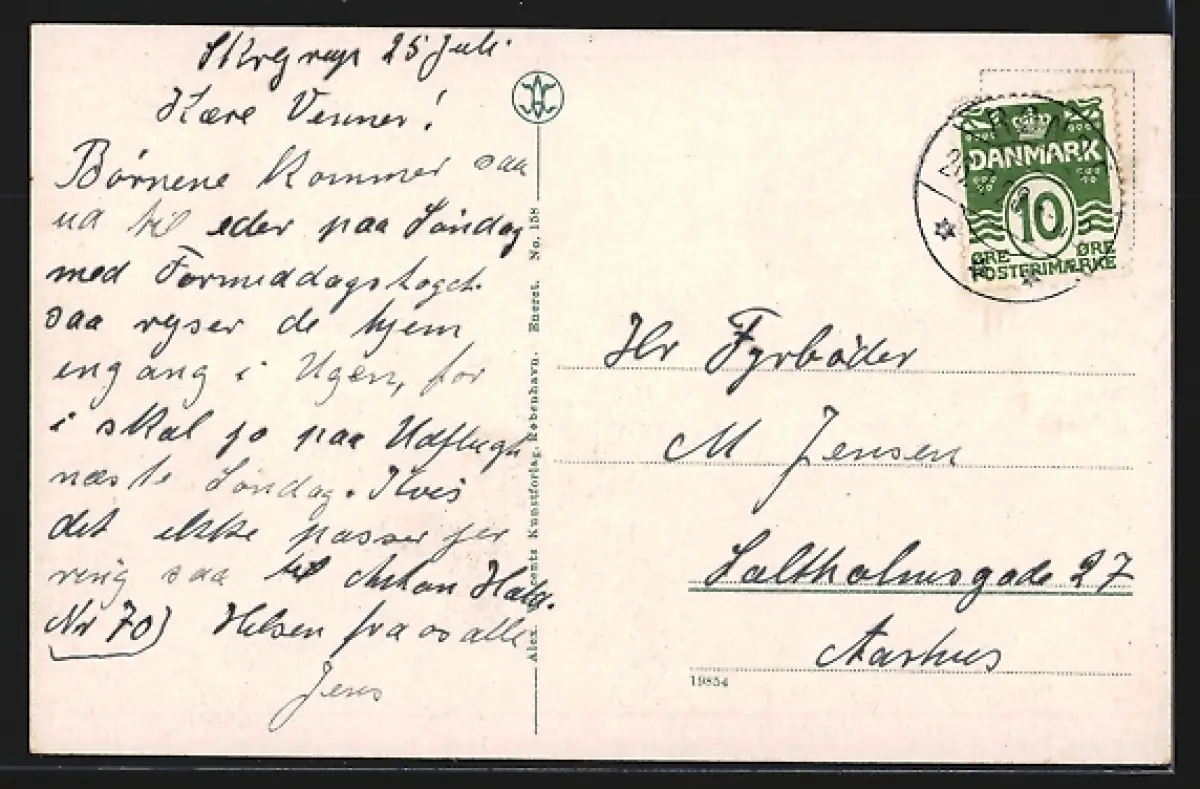 25 Juli
Kære Venner!
Børnene kommer saa
ud til eder paa Søndag
med Formiddagstoget
saa rejser de hjem
engang i Ugen, for
i skal jo paa Udflugt
næste Søndag. Hvis
det ikke passer jer
ring saa til Anton Hald.
Nr 70) Hilsen fra os alle
Jens
Alex. Vincents Kunstforlag, København. Eneret. No. 158
DANMARK
10
ØRE ØRE
POSTFRIMÆRKE
Hr Fyrbøder
M Jensen
Saltholmsgade 27
Aarhus
19854